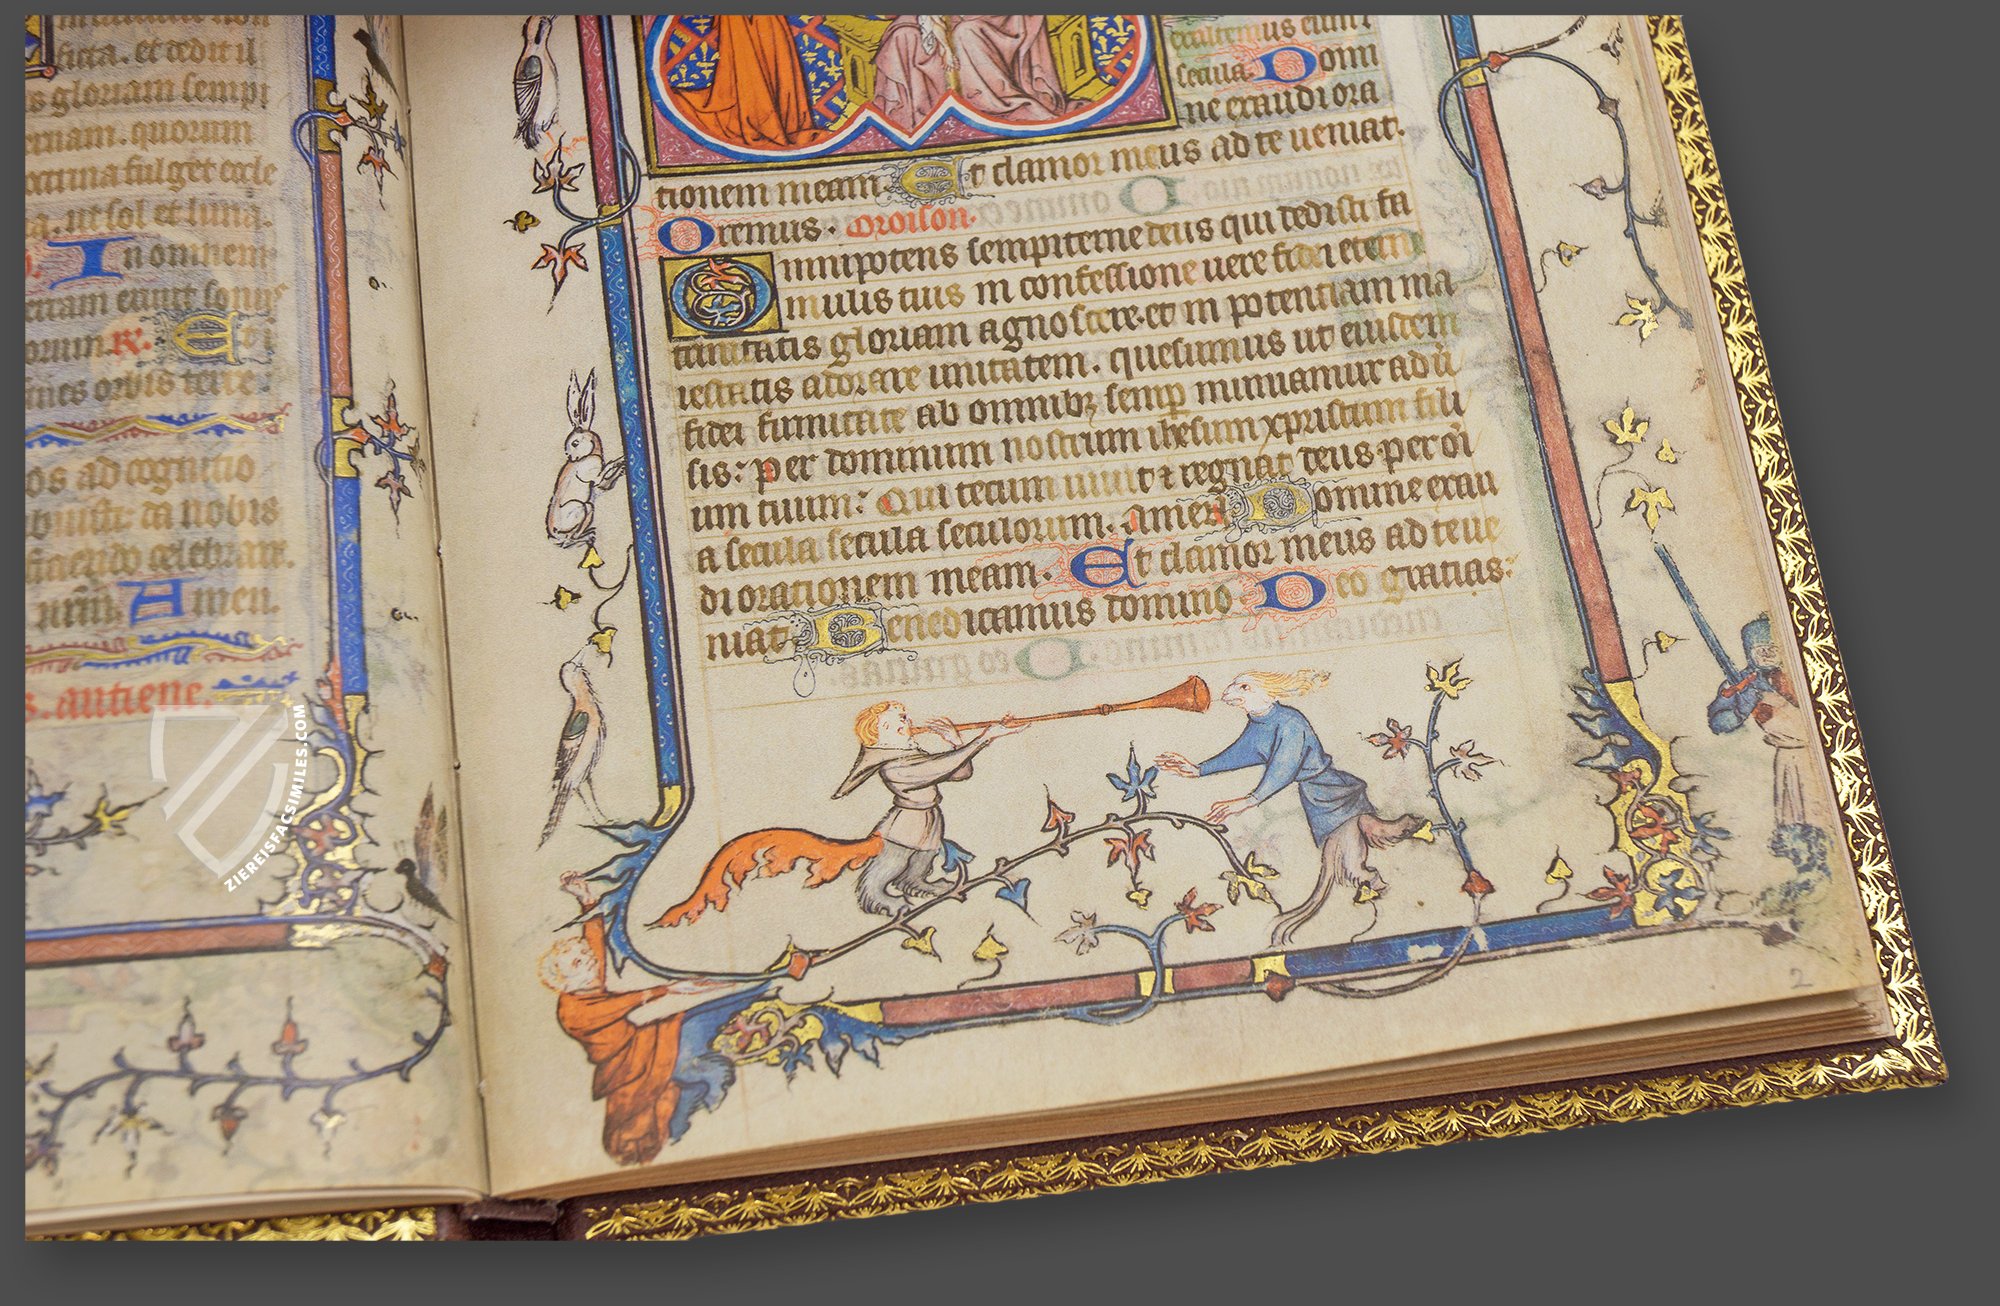 ficta. et tedit il
s gloriam sempi
ernam. quorum
fulget eccle
a. ut sol et luna.
In omnem
terram exiuit sonus
orum. R. Et i
fines orbis terre.
os ad cognitio
da nobis
celebrare.
Amen.
s. antiene.
ZIEREISFACSIMILES.COM
secula. Domi
ne exaudi ora
tionem meam. Et clamor meus ad te ueniat.
Oremus. Oroison.
Omnipotens sempiterne deus qui dedisti fa
mulis tuis in confessione uere fidei eterne
trinitatis gloriam agnoscere. et in potentiam ma
iestatis adorare unitatem. quesumus ut eiusdem
fidei firmitate ab omnibz semp muniamur adu
sis: Per dominum nostrum ihesum xpristum fili
um tuum: Qui tecum uiuit et regnat deus. per oi
a secula seculorum. amen. Domine exau
di orationem meam. Et clamor meus ad te ue
niat. Benedicamus domino. Deo gratias:
2